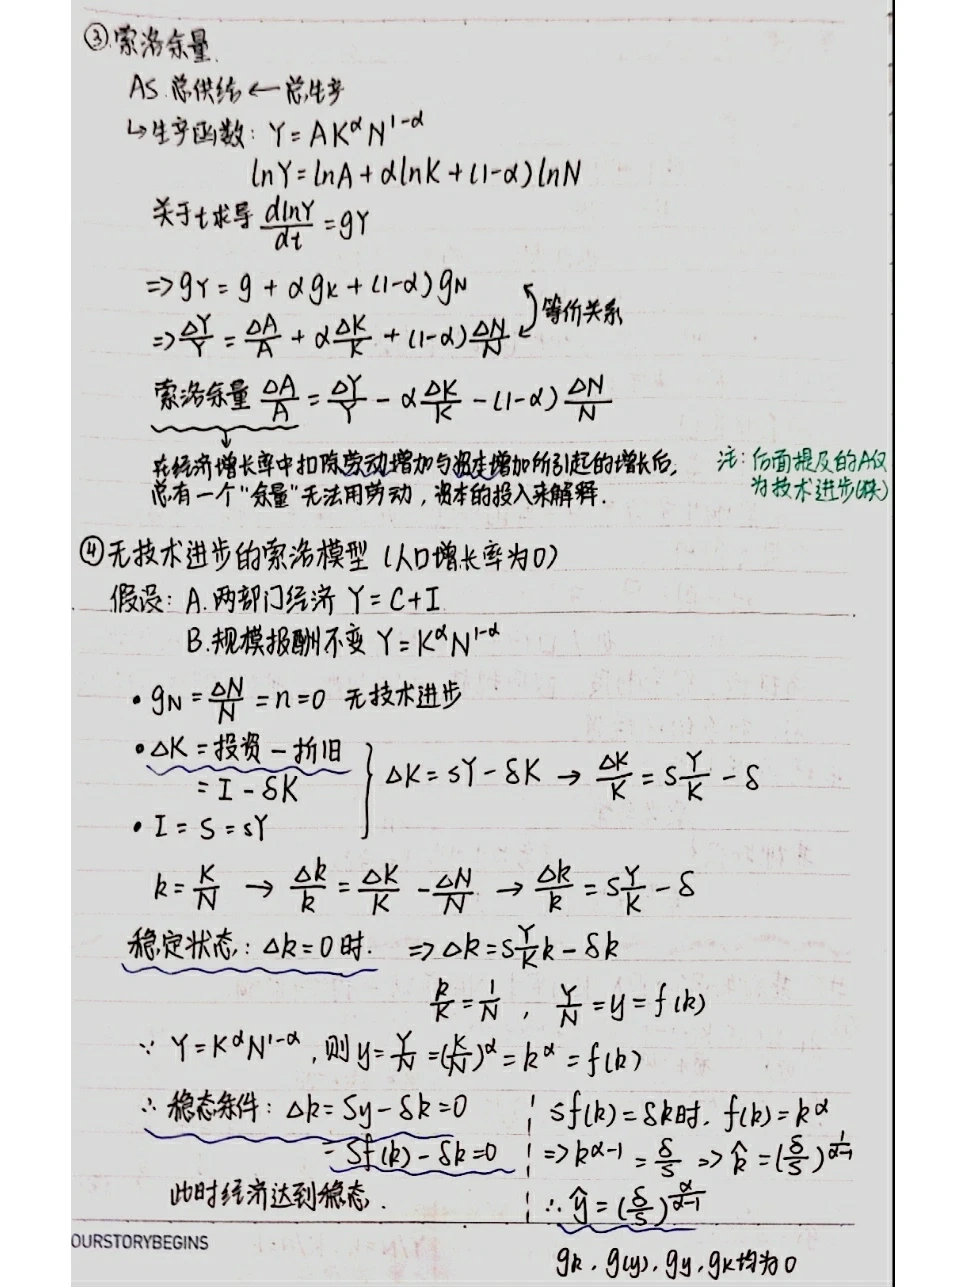 ③索洛余量.
AS.总供给←总生产
↳生产函数: Y=AK^αN^(1-α)
lnY=lnA+αlnK+(1-α)lnN
关于t求导 dlnY/dt=gY
=>gY=g+αgK+(1-α)gN
=>ΔY/Y=ΔA/A+αΔK/K+(1-α)ΔN/N 等价关系
索洛余量 ΔA/A=ΔY/Y-αΔK/K-(1-α)ΔN/N
在经济增长率中扣除劳动增加与资本增加所引起的增长后,
总有一个"余量"无法用劳动,资本的投入来解释.
注:后面提及的A仅
为技术进步(率)
④无技术进步的索洛模型(人口增长率为0)
假设: A.两部门经济 Y=C+I
B.规模报酬不变 Y=K^αN^(1-α)
•gN=ΔN/N=n=0 无技术进步
•ΔK=投资-折旧
=I-δK
•I=S=sY
ΔK=sY-δK→ΔK/K=sY/K-δ
k=K/N→Δk/k=ΔK/K-ΔN/N→Δk/k=sY/K-δ
稳定状态:Δk=0时. =>Δk=sY/Kk-δk
k/K=1/N, Y/N=y=f(k)
∵Y=K^αN^(1-α),则y=Y/N=(K/N)^α=k^α=f(k)
∴稳态条件:Δk=Sy-δk=0
=Sf(k)-δk=0
此时经济达到稳态.
Sf(k)=δk时, f(k)=k^α
=>k^(α-1)=δ/s=>k̂=(δ/s)^(1/(α-1))
∴ŷ=(δ/s)^(α/(α-1))
gk,g(y),gy,gK均为0
OURSTORYBEGINS